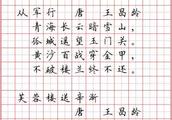 从军行 唐 王昌龄
青海长云暗雪山，
孤城遥望玉门关。
黄沙百战穿金甲，
不破楼兰终不还。
芙蓉楼送辛渐
唐 王昌龄